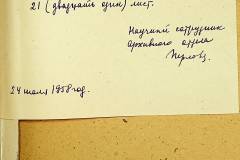 21 (двадцать один) лист.
Научный сотрудник
архивного отдела
24 июля 1958 год.